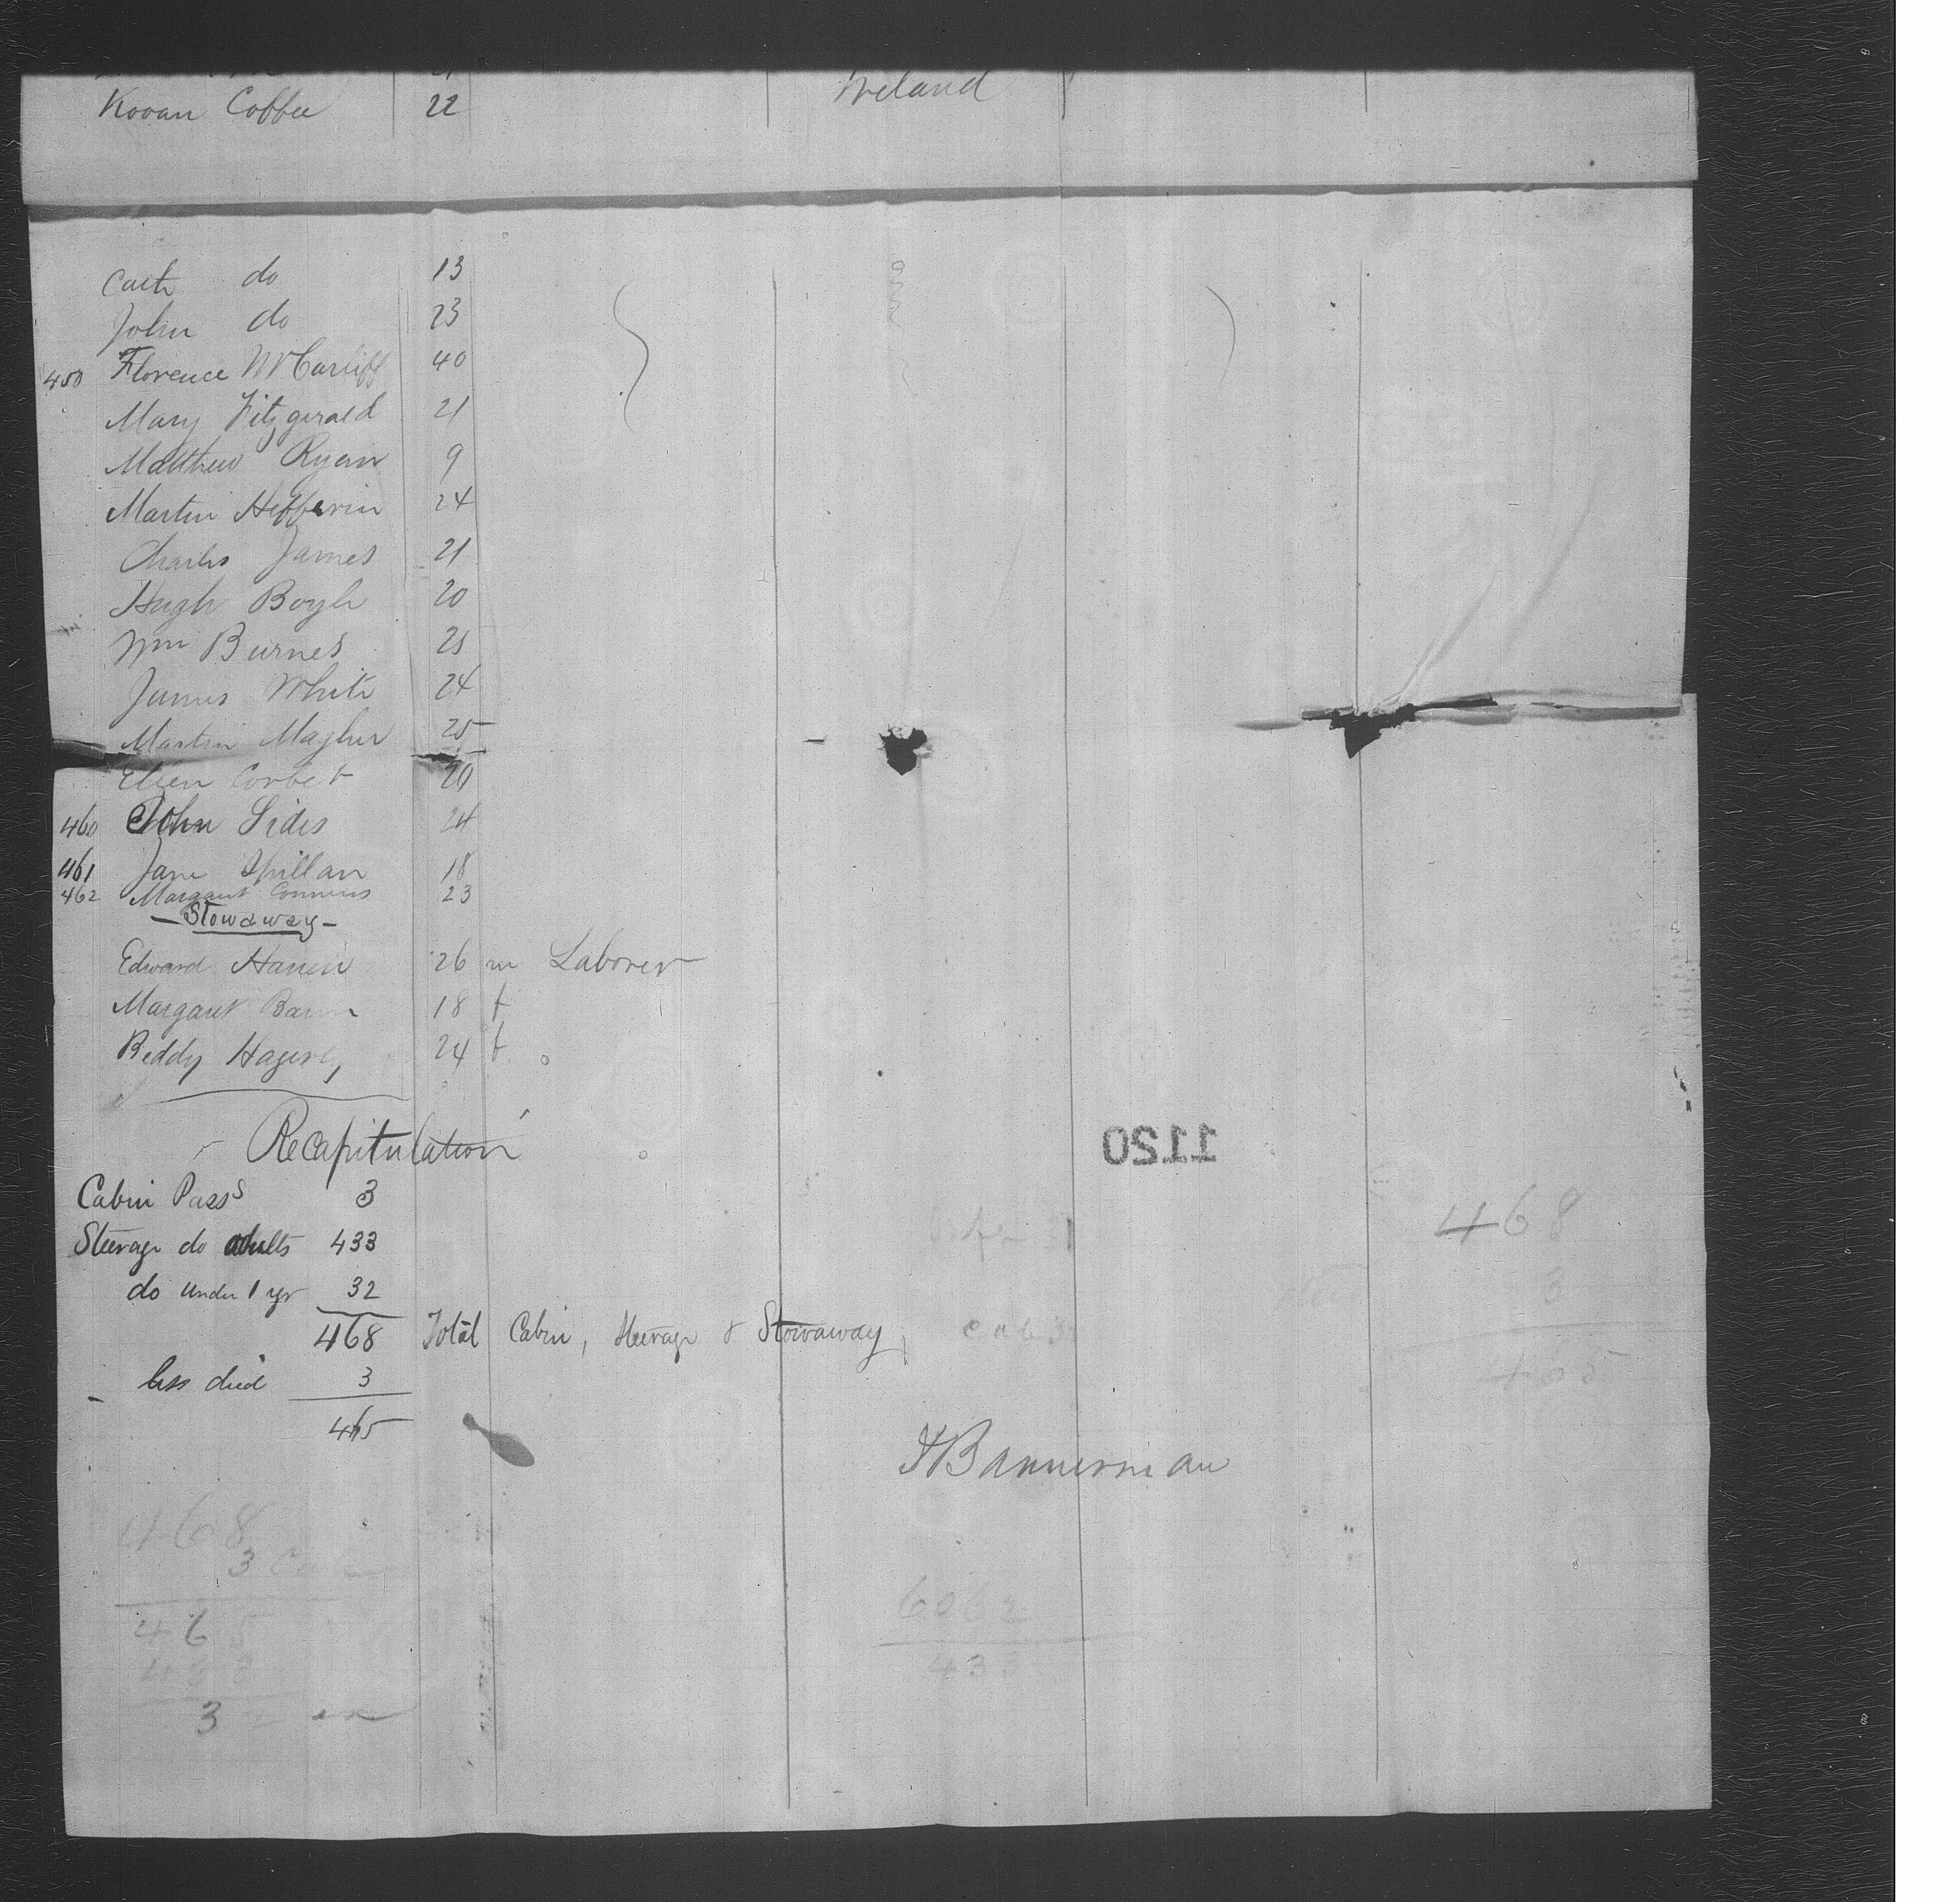 Ireland
Kovan Coffee 22
Cath do 13
John do 23
450 Florence McCartiff 40
Mary Fitzgerald 21
Matthew Ryan 9
Martin Hefferin 24
Charles James 21
Hugh Boyle 20
Wm Burnes 25
James White 24
Martin Magher 25
Ellen Corbet 20
460 John Sides 24
461 Jane Spillan 18
462 Margaret Connins 23
- Stowaway -
Edward Hanen 26 m Laborer
Margaret 18 f
Beddy Hagerty 24 f
Recapitulation
Cabin Passs 3
Steerage do adults 433
do under 1 yr 32
468 Total Cabin, Steerage & Stowaway
less died 3
465
1120
468
3
465
Bannerman
468
3
465
3
6062
433